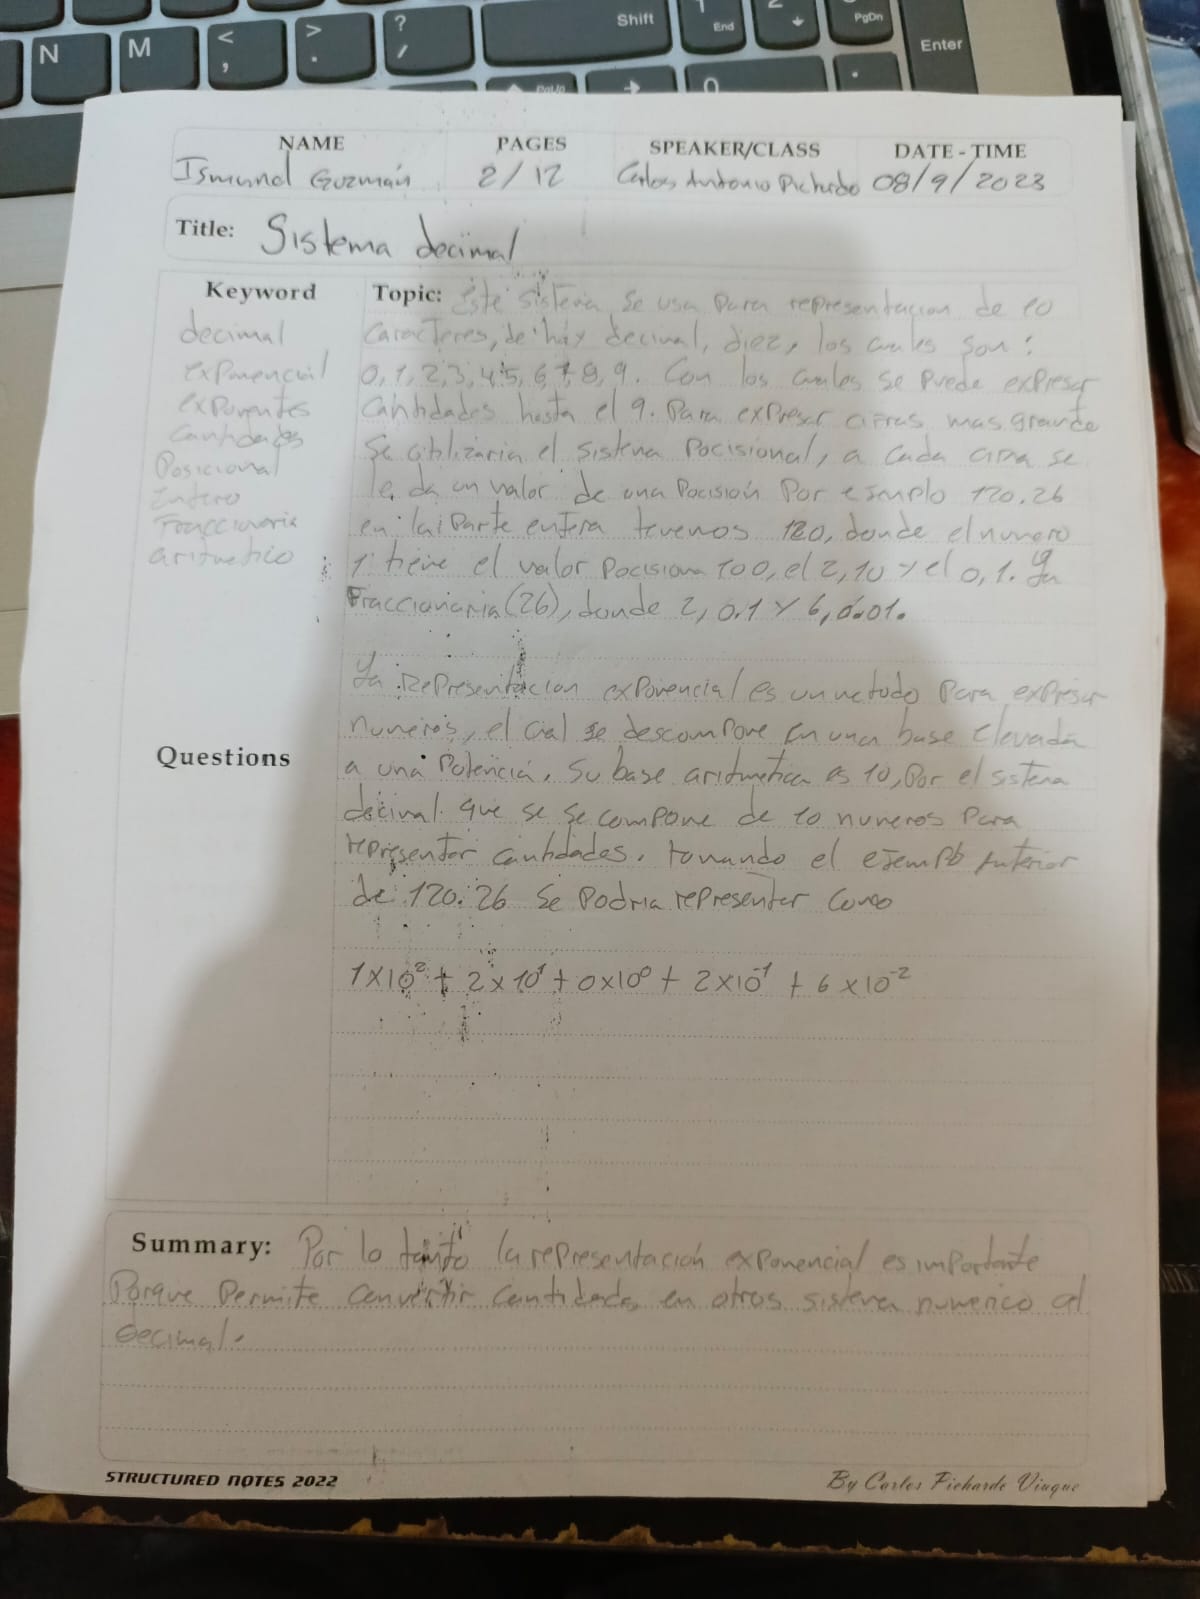 N M < , > . ? / Shift 1 End 2 PgDn Enter
PgUp 0 .
NAME PAGES SPEAKER/CLASS DATE - TIME
Ismund Guzmán 2/12 Carlos Antonio Pichardo 08/9/2023
Title: Sistema decimal
Keyword
decimal
exponencial
exponentes
Cantidades
Posicional
Entero
Fraccionaria
aritmetico
Topic: Este sistema se usa para representacion de 10
Caracteres, de hay decimal, diez, los cuales son:
0, 1, 2, 3, 4, 5, 6, 7, 8, 9. Con los cuales se puede expresar
Cantidades hasta el 9. Para expresar cifras mas grande
Se utilizaria el sistema Pocisional, a cada cifra se
le da un valor de una Pocisión Por ejmplo 120.26
en la Parte entera tenemos 120, donde el numero
1 tiene el valor Pocisiona 100, el 2, 10 y el 0, 1. Ya
Fraccionaria (26), donde 2, 0.1 y 6, 0.01.
La Representacion exponencial es un metodo Para expresar
numeros, el cial se descompone en una base elevada
a una Potencia. Su base aritmetica es 10, Por el sistema
decimal que se se compone de 10 numeros Para
representar cantidades. tomando el ejemplo anterior
de 120.26 Se Podria representar como
1x10² + 2x10¹ + 0x10⁰ + 2x10⁻¹ + 6x10⁻²
Questions
Summary: Por lo tanto la representación exponencial es importante
Porque Permite convertir cantidades en otros sistema numerico al
decimal.
STRUCTURED NOTES 2022 By Carlos Pichardo Viuque